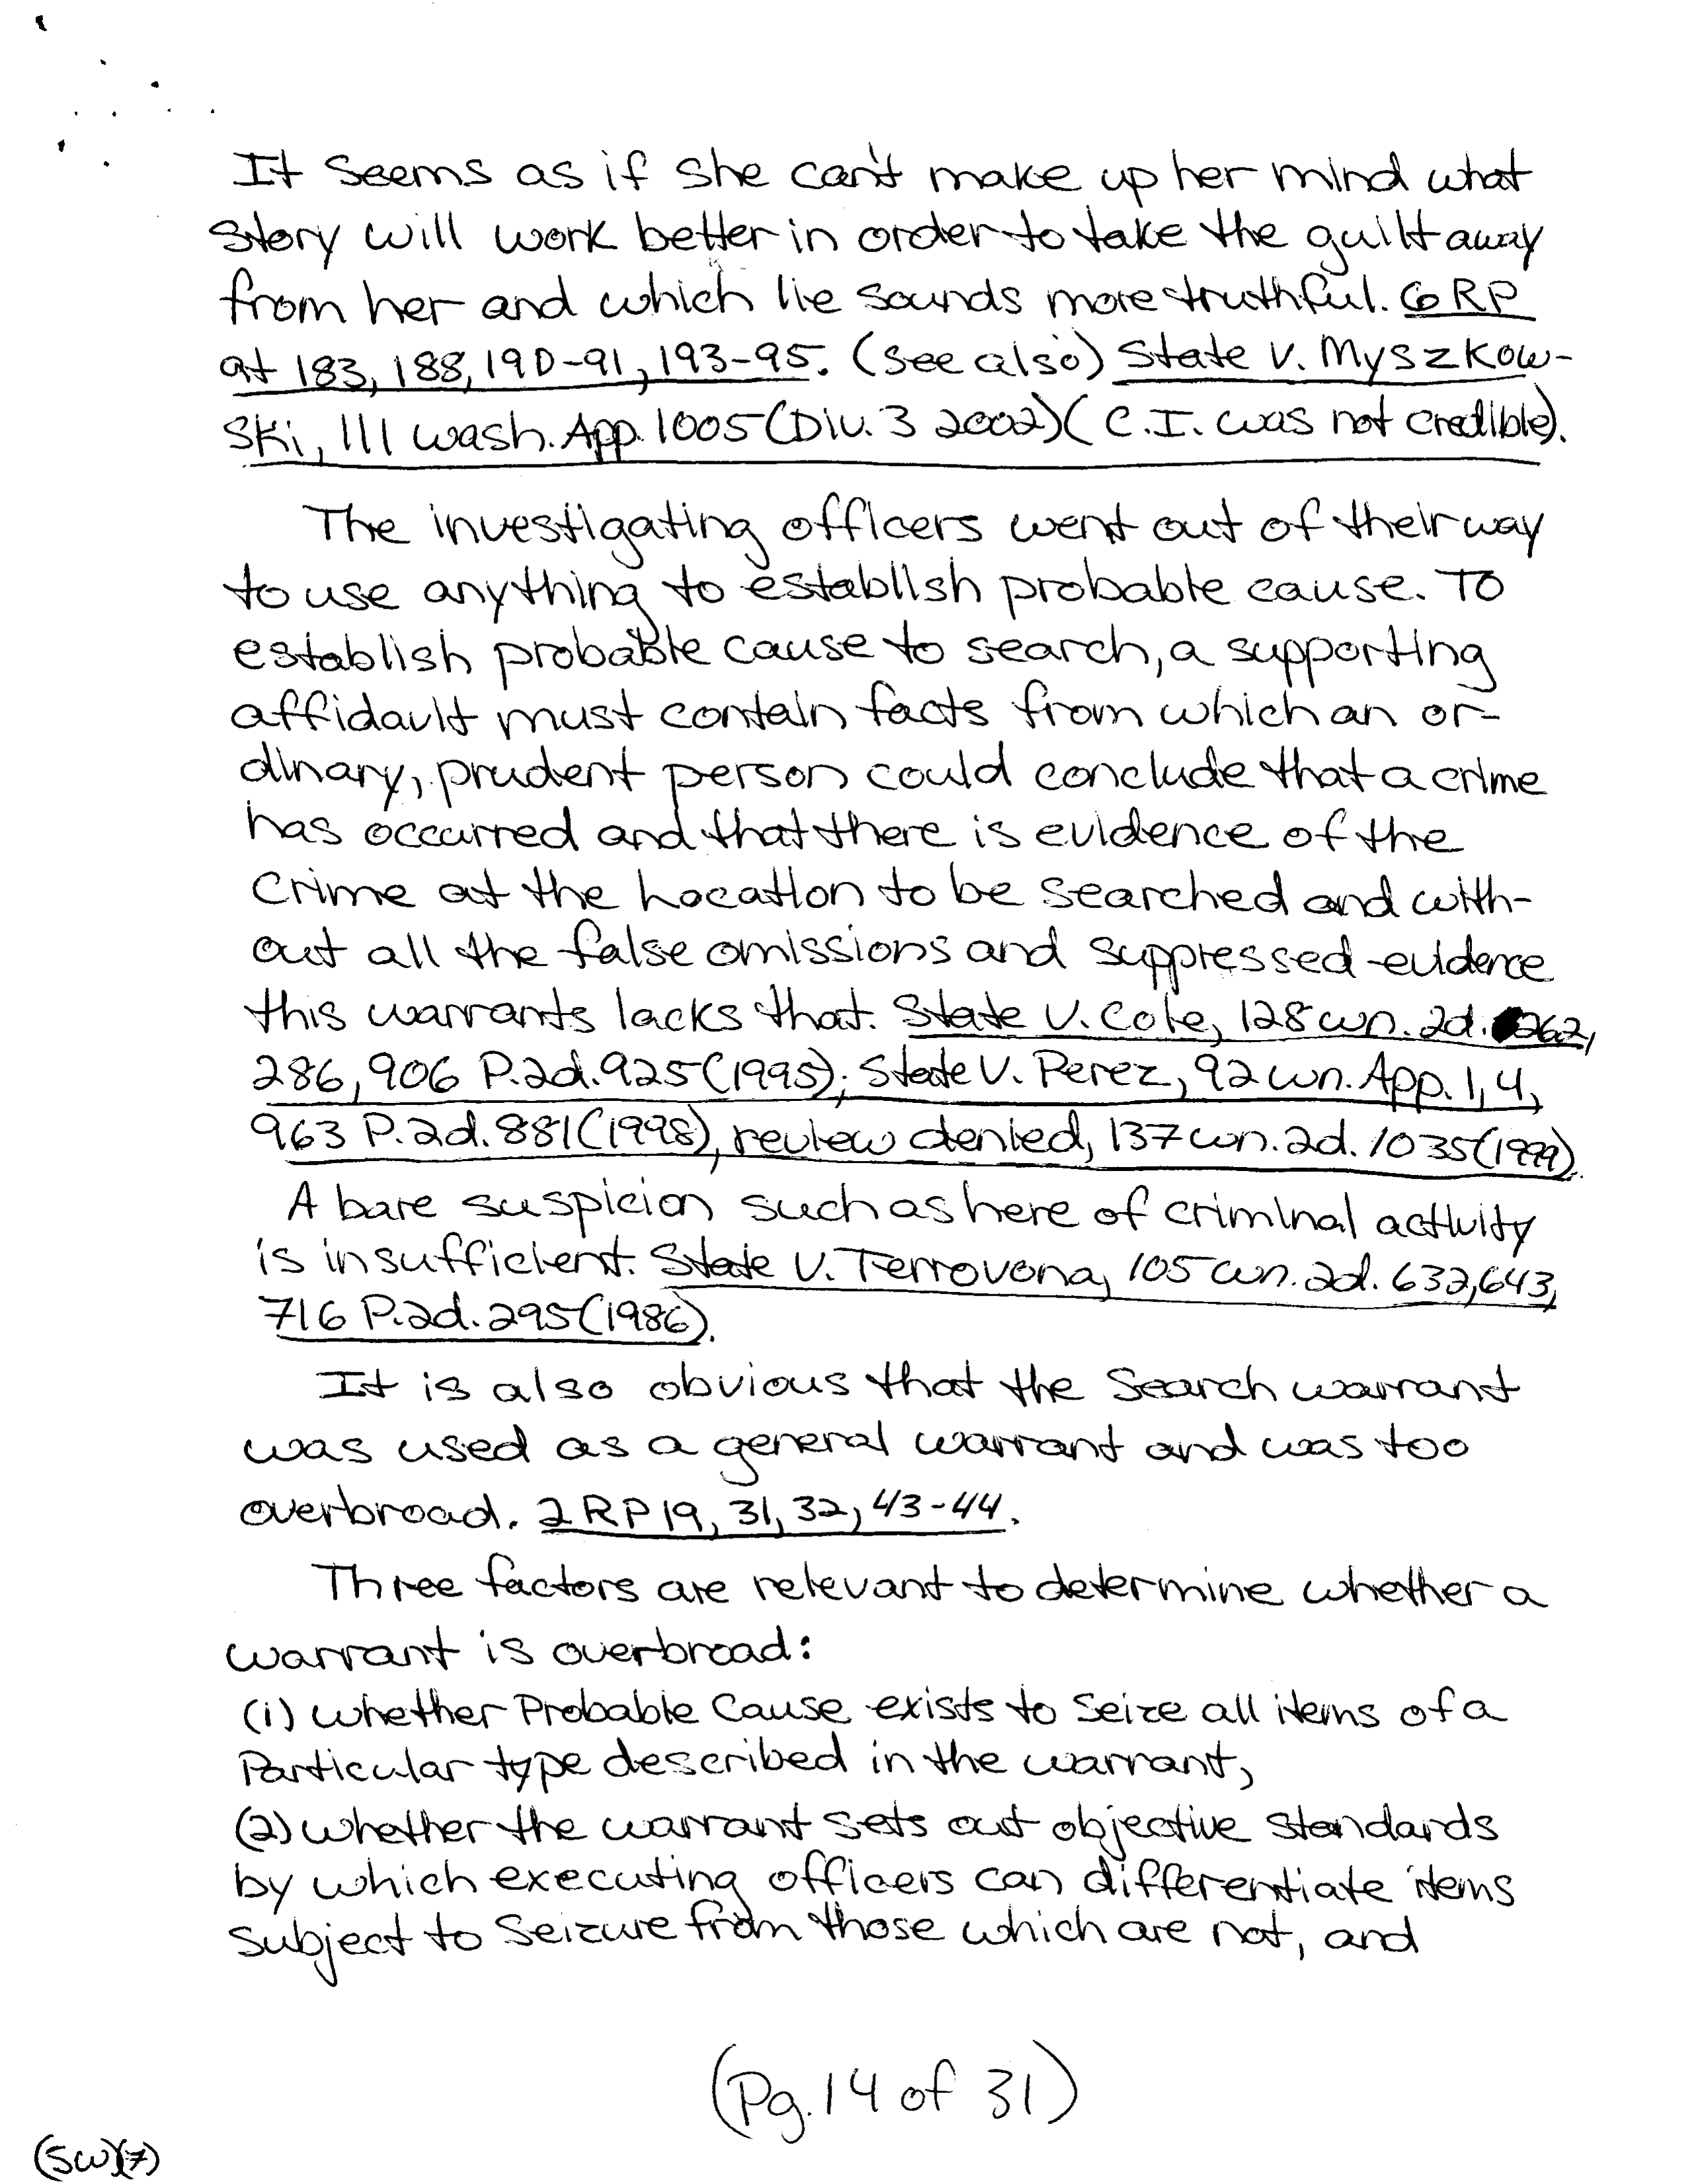 It seems as if she can't make up her mind what
story will work better in order to take the guilt away
from her and which lie sounds more truthful. 6 RP
at 183, 188, 190-91, 193-95. (see also) State v. Myszkow-
ski, 111 wash. App. 1005 (Div. 3 2002)( C.I. was not credible).
The investigating officers went out of their way
to use anything to establish probable cause. To
establish probable cause to search, a supporting
affidavit must contain facts from which an or-
dinary, prudent person could conclude that a crime
has occurred and that there is evidence of the
crime at the Location to be searched and with-
out all the false omissions and suppressed evidence
this warrants lacks that. State v. Cole, 128 wn. 2d. 262,
286, 906 P.2d. 925 (1995); State v. Perez, 92 wn. App. 1, 4,
963 P.2d. 881 (1998), review denied, 137 wn. 2d. 1035 (1999).
A bare suspicion such as here of criminal activity
is insufficient. State v. Terrovona, 105 wn. 2d. 632, 643,
716 P.2d. 295 (1986).
It is also obvious that the Search warrant
was used as a general warrant and was too
overbroad. 2 RP 19, 31, 32, 43-44.
Three factors are relevant to determine whether a
warrant is overbroad:
(1) whether Probable Cause exists to seize all items of a
Particular type described in the warrant,
(2) whether the warrant sets out objective standards
by which executing officers can differentiate items
subject to seizure from those which are not, and
(Pg. 14 of 31)
(SW)(7)